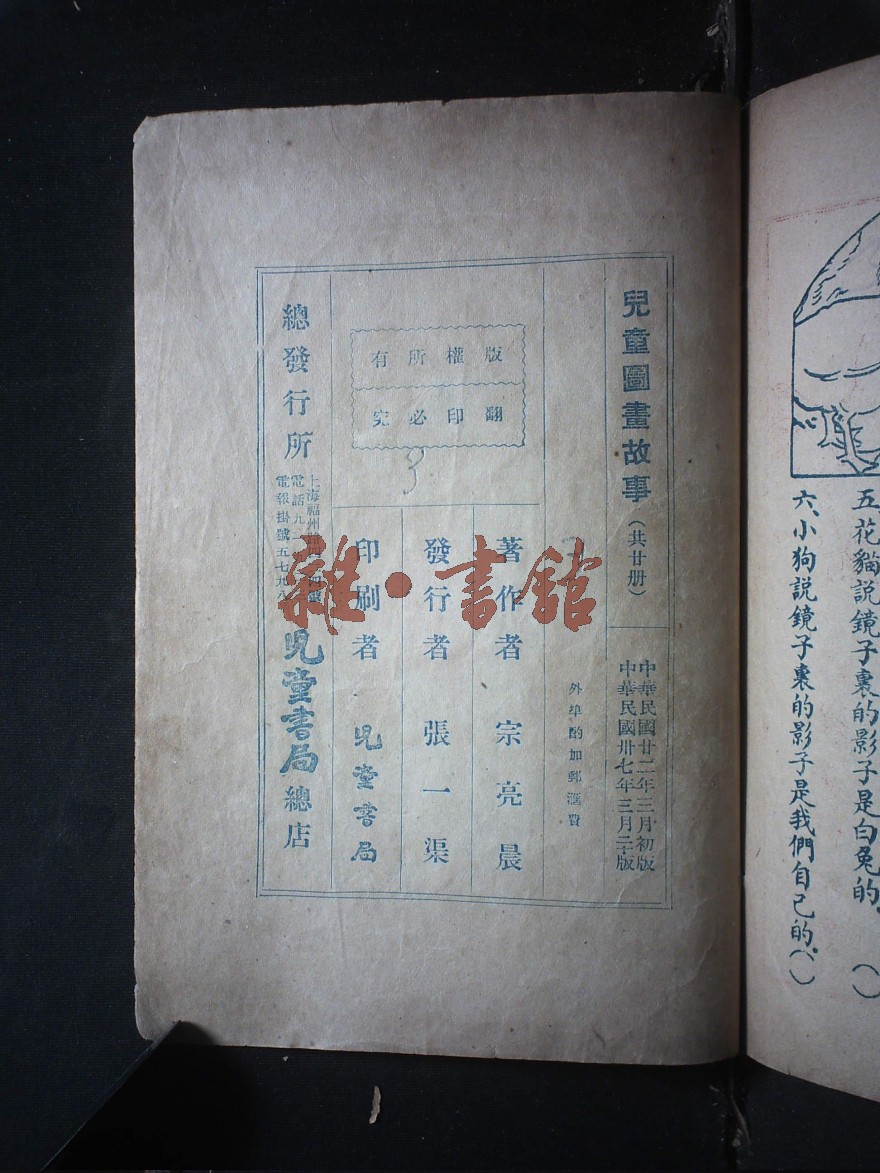 兒童圖畫故事(共廿册)
中華民國廿二年三月初版
中華民國卅七年三月二十版
外埠酌加郵滙費
版權所有
翻印必究
著作者 宗亮晨
發行者 張一渠
印刷者 兒童書局
總發行所
上海福州路
電話九
電報掛號五七九
兒童書局總店
雜·書舘
五、花貓說鏡子裏的影子是白兔的。()
六、小狗說鏡子裏的影子是我們自己的。()